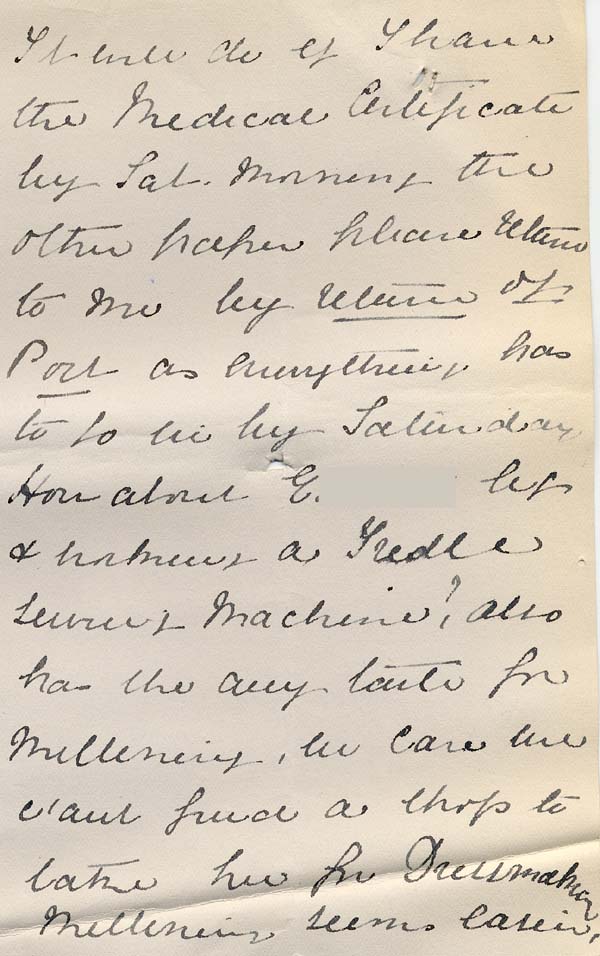 It will do if I have
the Medical Certificate
by Sat. Morning the
other paper please return
to me by return of
Post as everything has
to be in by Saturday
How about G. legs
& working a Tredle
sewing Machine? also
has she any taste for
Millenery, in case we
c'ant find a shop to
take her for Dressmaking
Millenery seems easier,